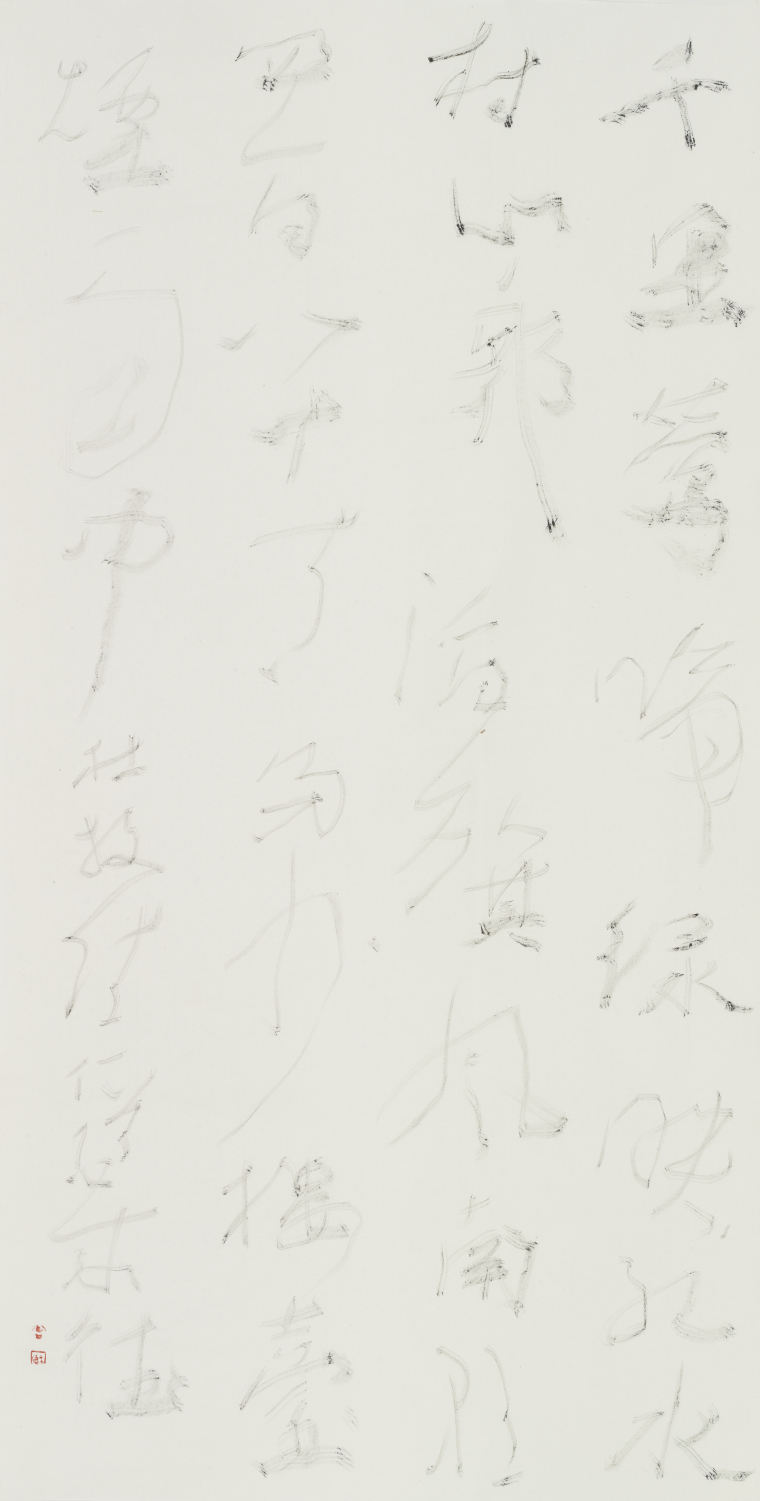 千里鶯啼緑映紅水
村山郭酒旗風南朝
四百八十寺多少樓臺
煙雨中杜牧